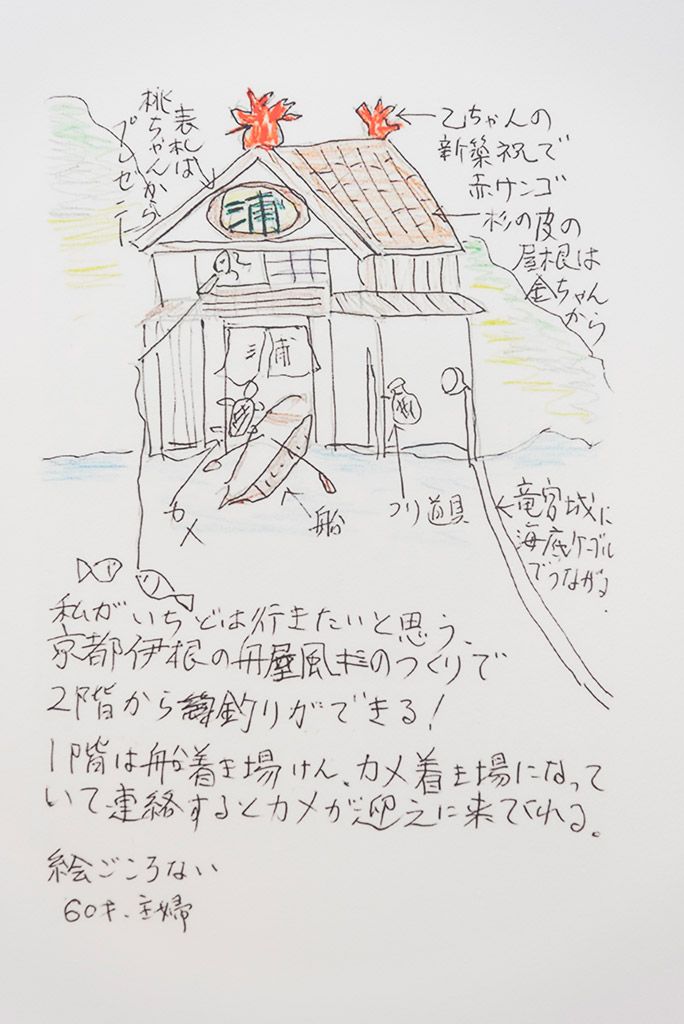 表札は
桃ちゃんから
プレゼント
乙ちゃんの
新築祝で
赤サンゴ
杉の皮の
屋根は
金ちゃん
から
浦
三浦
カメ
船
つり道具
竜宮城に
海底ケーブル
でつながる.
私がいちどは行きたいと思う、
京都伊根の舟屋風のつくりで
2階から釣りができる!
1階は船着き場けん、カメ着き場になって
いて連絡するとカメが迎えに来てくれる。
絵ごころない
60才、主婦